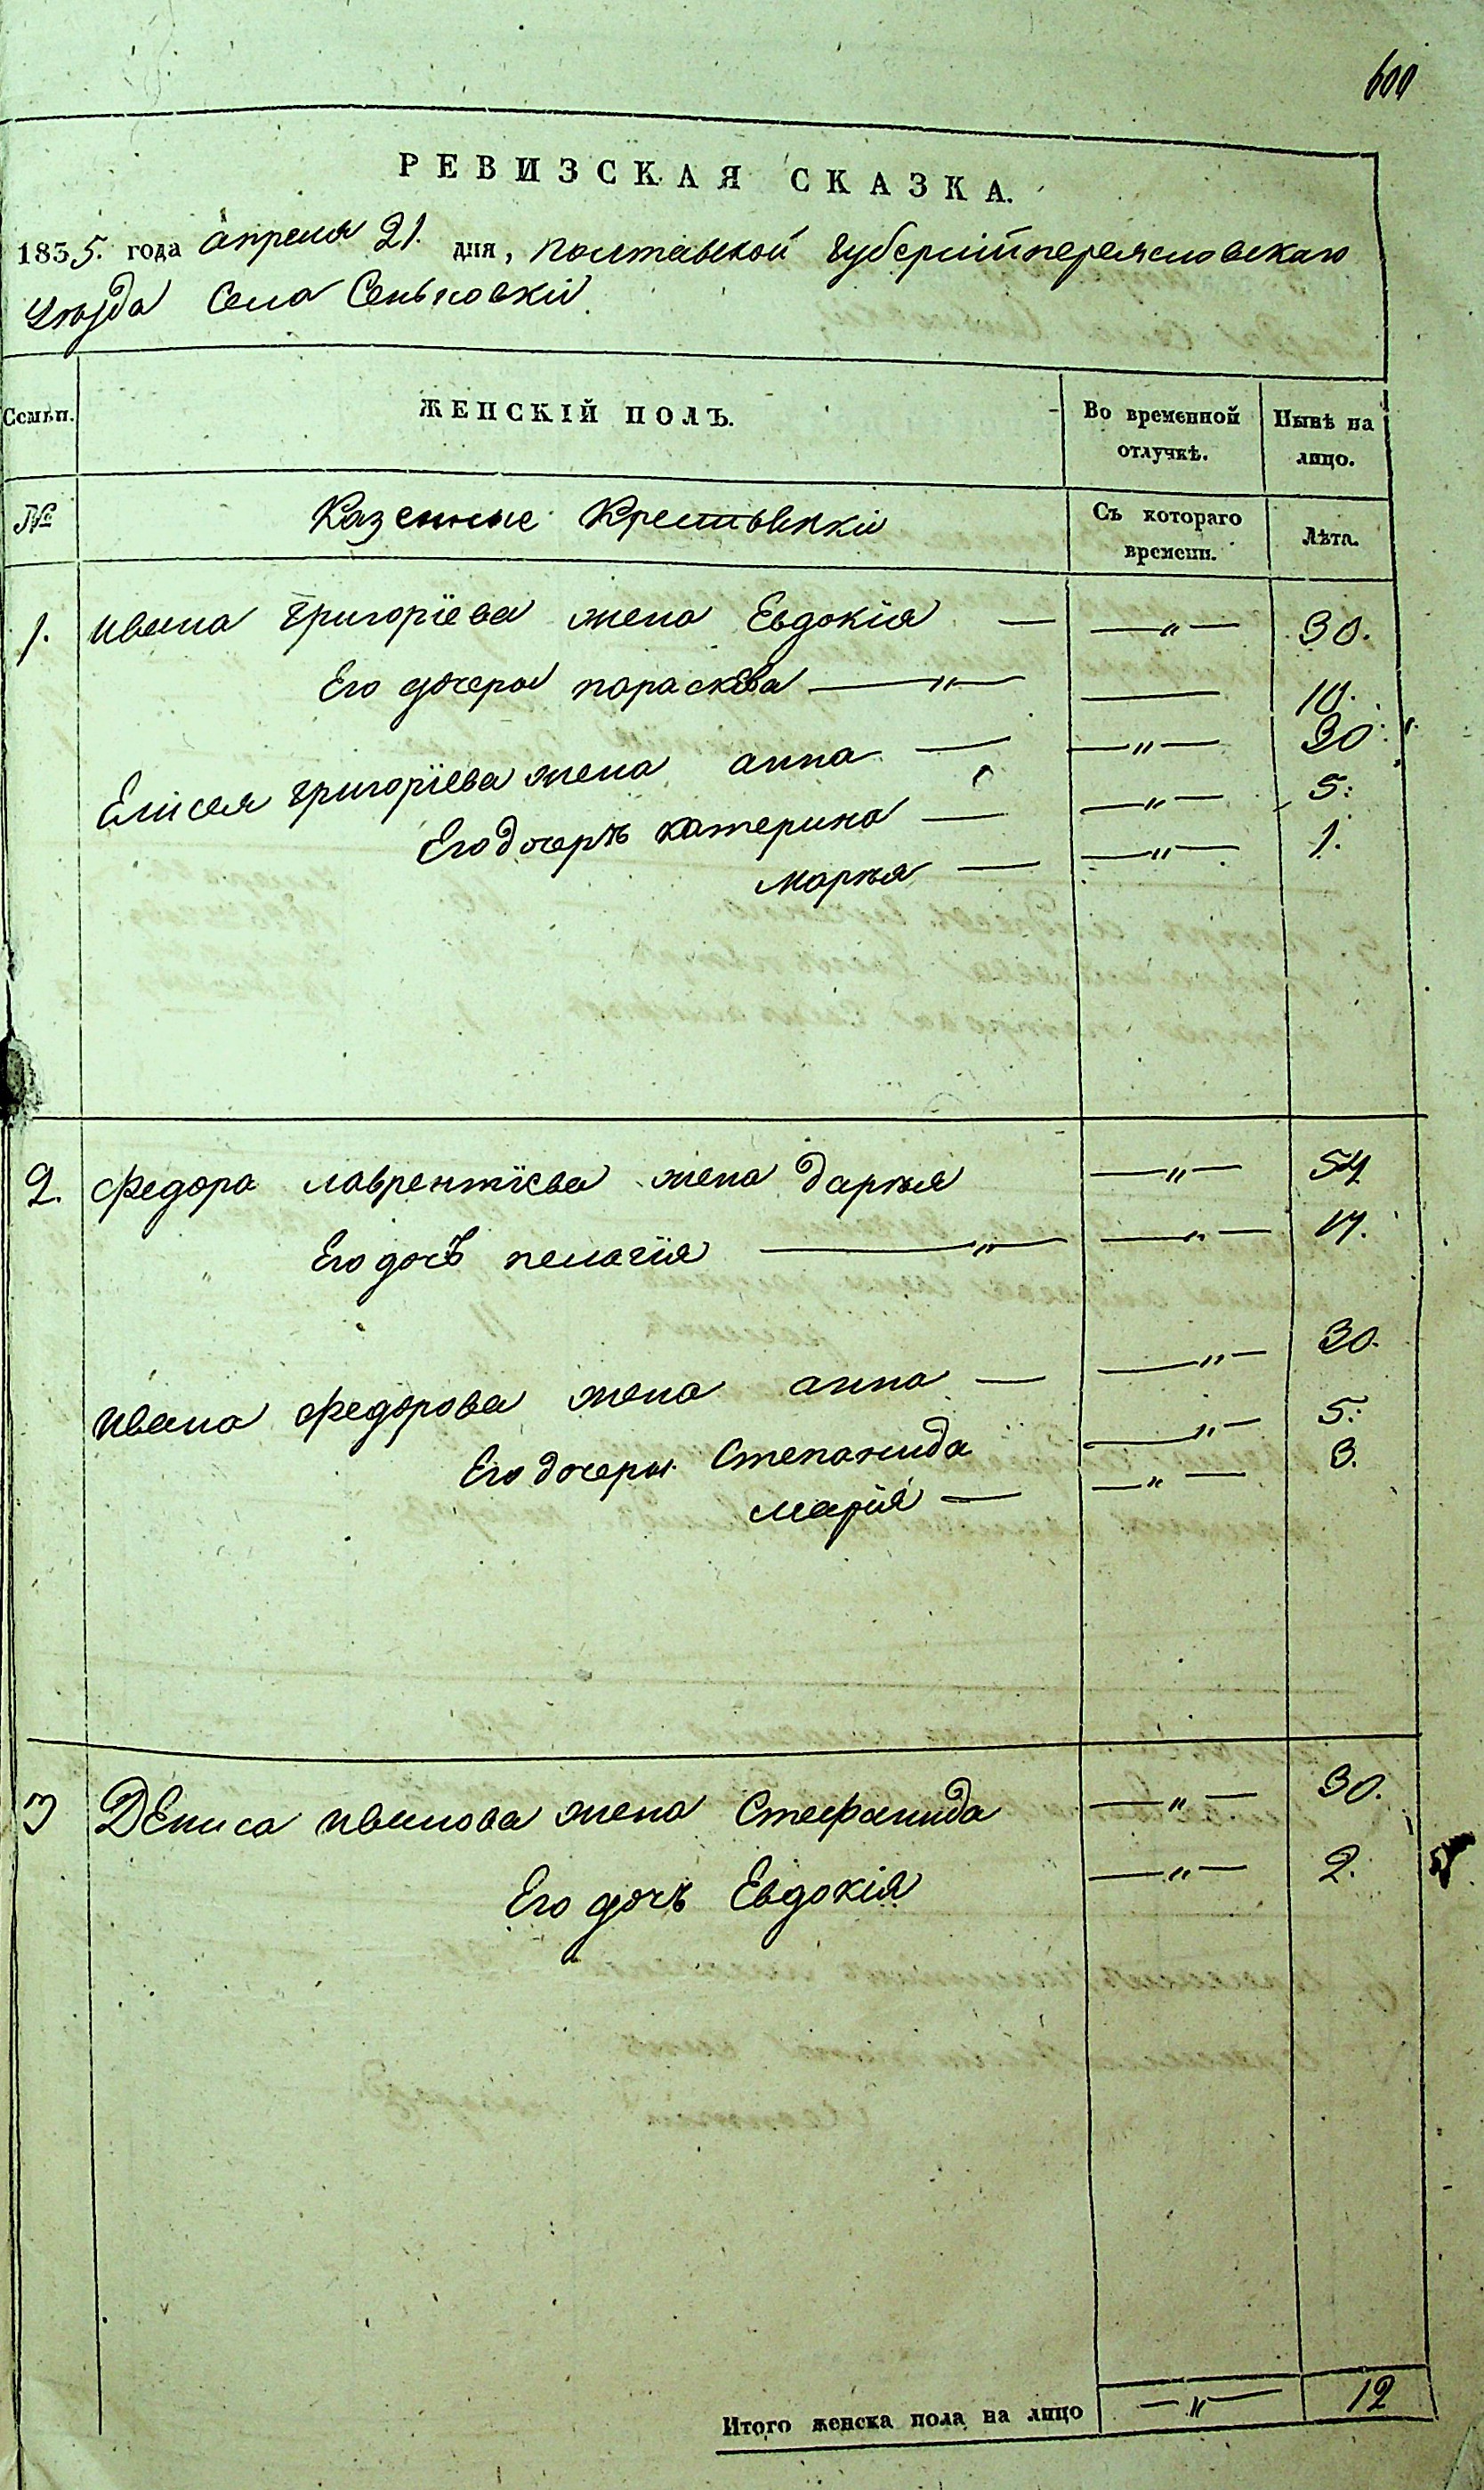 600
РЕВИЗСКАЯ СКАЗКА.
1835. года апреля 21. дня, полтавской губернiй переясловскаго
уезда Села Сеньковкiй
Семьи. ЖЕНСКIЙ ПОЛЪ. Во временной отлучкѣ. Нынѣ на лицо.
№ Казенные Крестьянкiй Съ котораго времени. Лѣта.
1. ивана григорїева жена Евдокiя — —„— 30.
Его дочеры параскева —„— — 10.
Елисея григорїева жена анна — —„— 30
Его дочеръ катерина — —„— 5.
марья — —„— 1.
2. федора лаврентїева жена дарья —„— 54
Его дочь пелагїя —„— —„— 17.
ивана федорова жена анна — —„— 30.
Его дочеры Степанида —„— 5.
марїя — —„— 3.
3 Дениса иванова жена Стефанида —„— 30.
Его дочь Евдокiя —„— 2.
Итого женска пола на лицо —„— 12